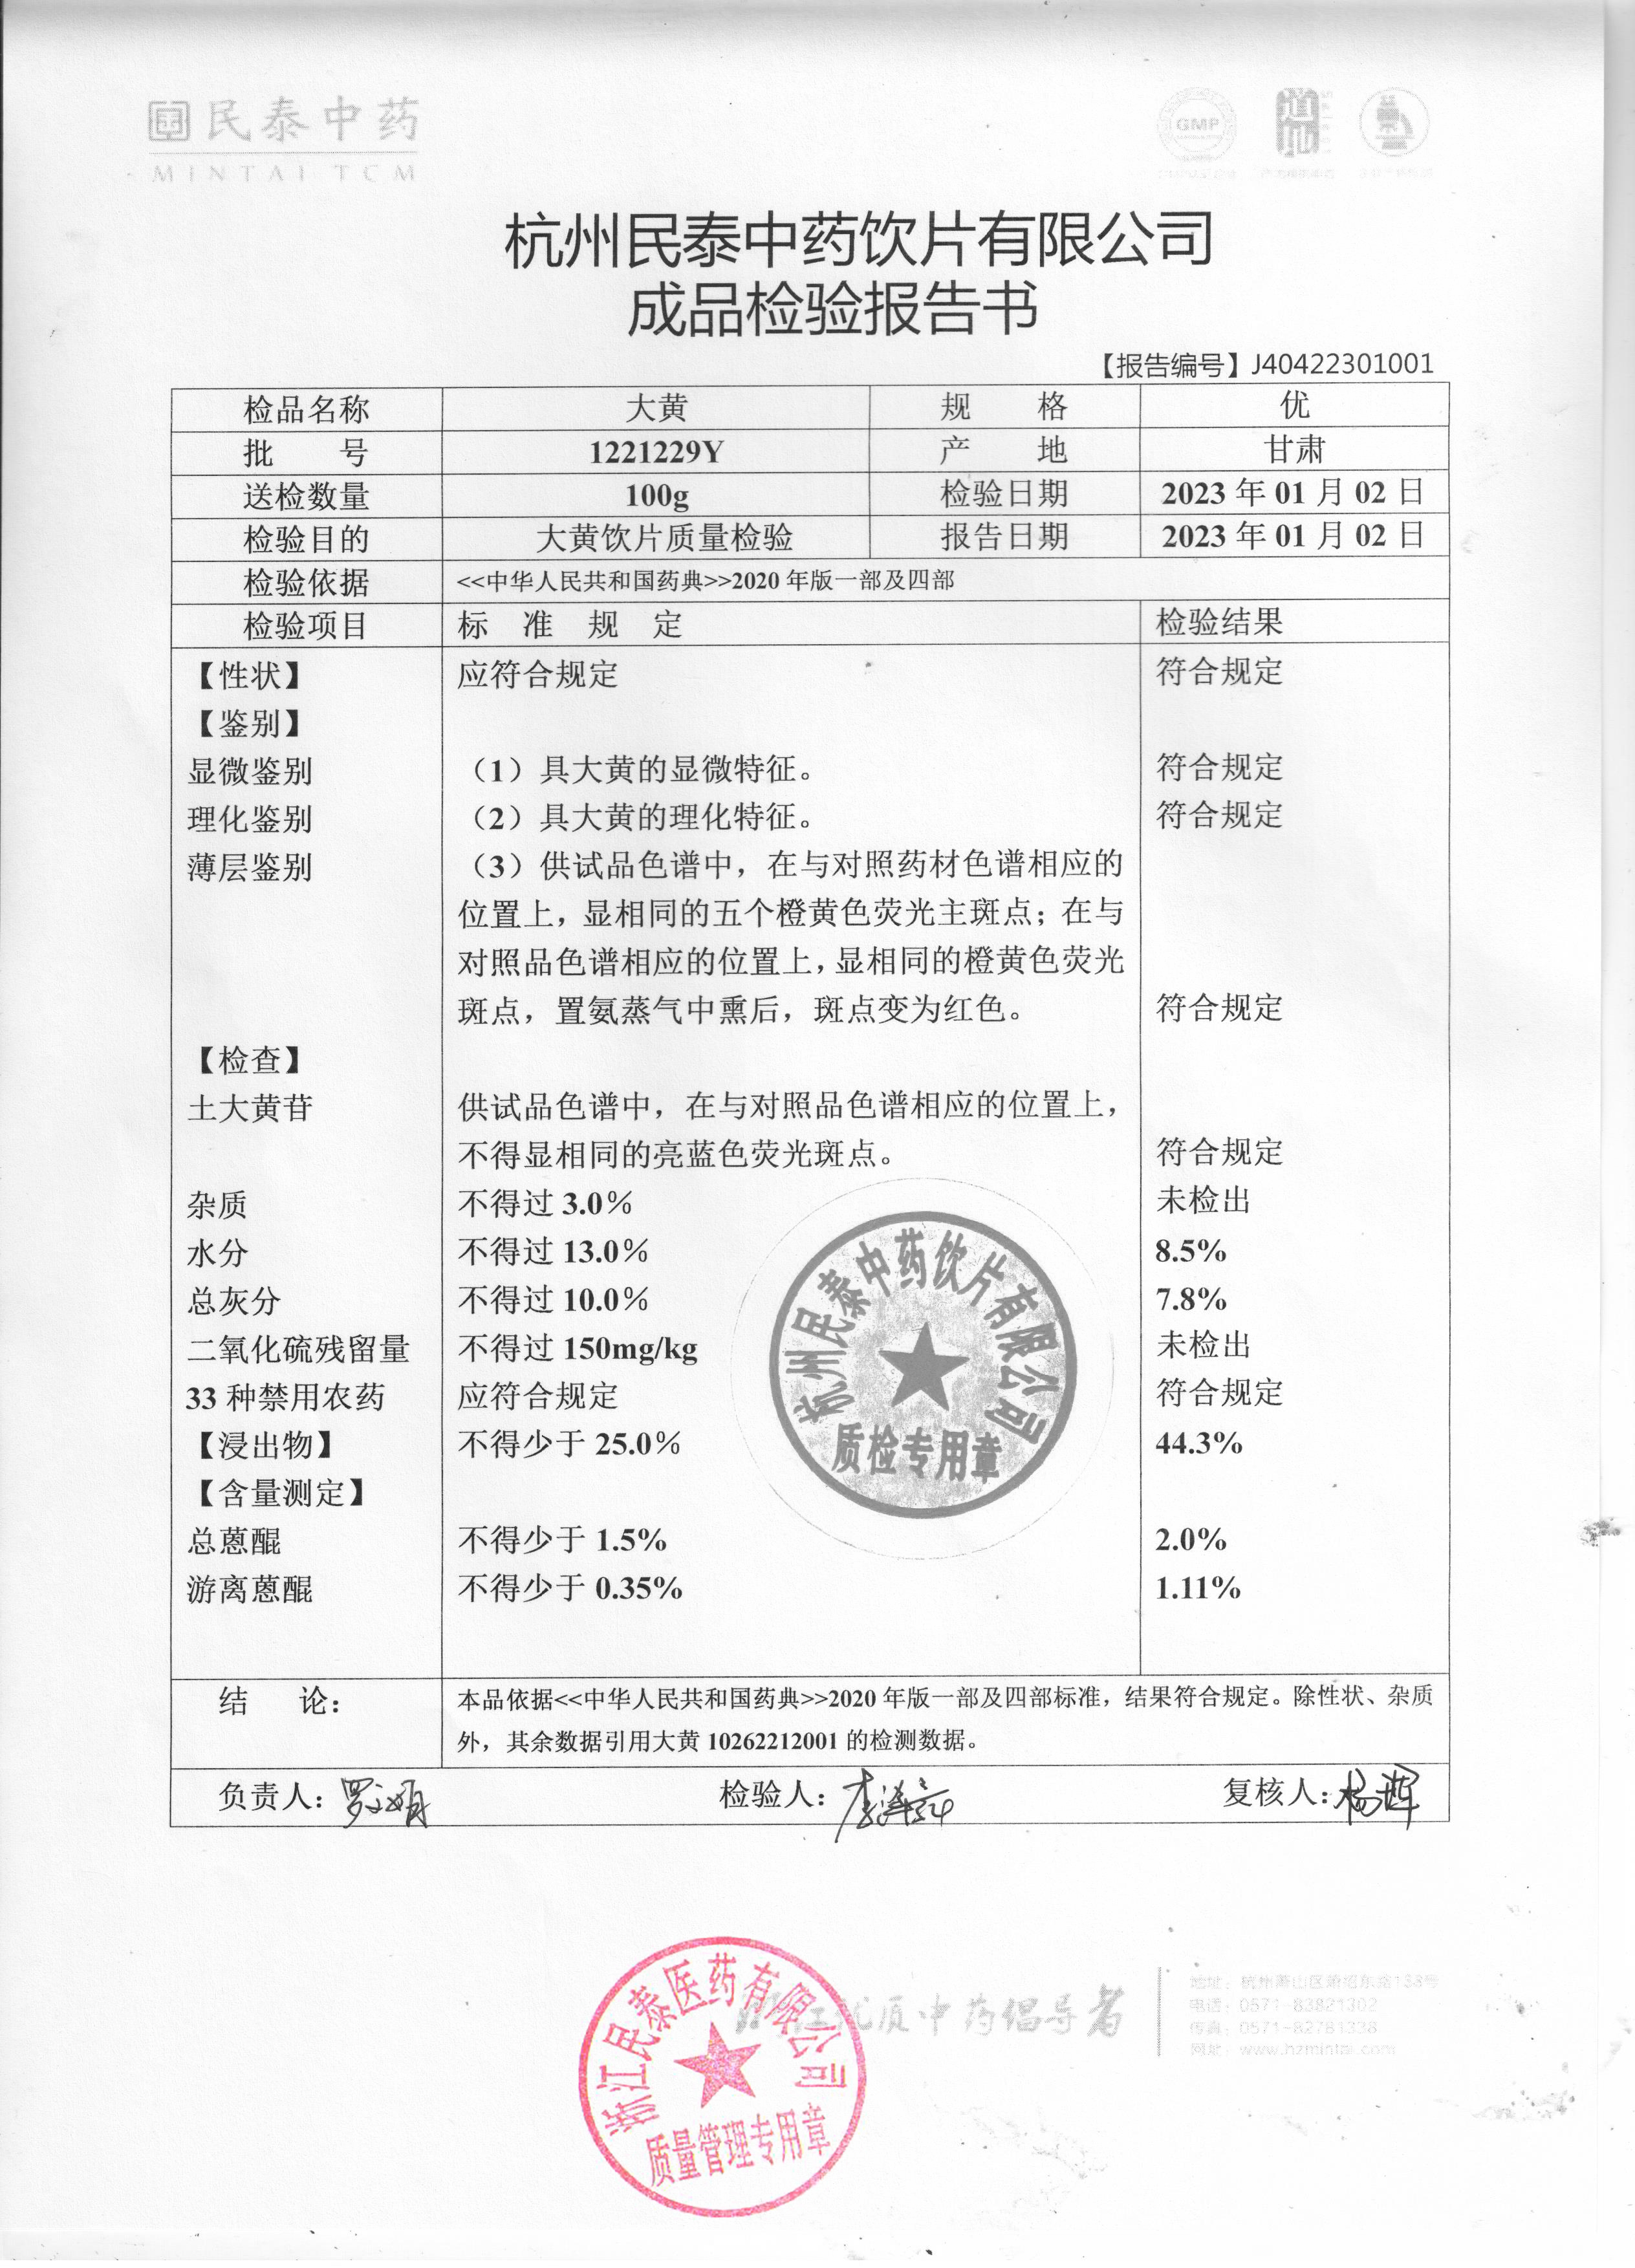 民泰中药
MINTAI TCM
GMP
道地
杭州民泰中药饮片有限公司
成品检验报告书
【报告编号】J40422301001
检品名称 大黄 规 格 优
批 号 1221229Y 产 地 甘肃
送检数量 100g 检验日期 2023 年 01 月 02 日
检验目的 大黄饮片质量检验 报告日期 2023 年 01 月 02 日
检验依据 <<中华人民共和国药典>>2020 年版一部及四部
检验项目 标 准 规 定 检验结果
【性状】 应符合规定 符合规定
【鉴别】
显微鉴别 （1）具大黄的显微特征。 符合规定
理化鉴别 （2）具大黄的理化特征。 符合规定
薄层鉴别 （3）供试品色谱中，在与对照药材色谱相应的
位置上，显相同的五个橙黄色荧光主斑点；在与
对照品色谱相应的位置上，显相同的橙黄色荧光
斑点，置氨蒸气中熏后，斑点变为红色。 符合规定
【检查】
土大黄苷 供试品色谱中，在与对照品色谱相应的位置上，
不得显相同的亮蓝色荧光斑点。 符合规定
杂质 不得过 3.0% 未检出
水分 不得过 13.0% 8.5%
总灰分 不得过 10.0% 7.8%
二氧化硫残留量 不得过 150mg/kg 未检出
33 种禁用农药 应符合规定 符合规定
【浸出物】 不得少于 25.0% 44.3%
【含量测定】
总蒽醌 不得少于 1.5% 2.0%
游离蒽醌 不得少于 0.35% 1.11%
杭州民泰中药饮片有限公司
质检专用章
结 论： 本品依据<<中华人民共和国药典>>2020 年版一部及四部标准，结果符合规定。除性状、杂质
外，其余数据引用大黄 10262212001 的检测数据。
负责人： 检验人： 复核人：杨辉
浙江民泰医药有限公司
质量管理专用章
浙江优质中药倡导者
地址：杭州萧山区萧绍东路138号
电话：0571-83821302
传真：0571-82781338
网址：www.hzmintai.com